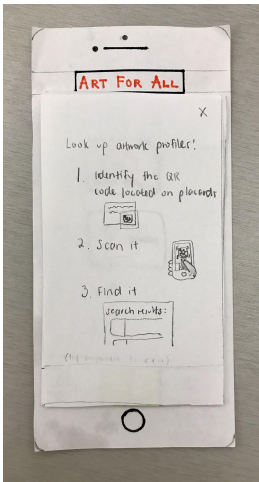 ART FOR ALL
X
Look up artwork profiles!
1. Identify the QR
code located on placards
2. Scan it
3. Find it
search results: